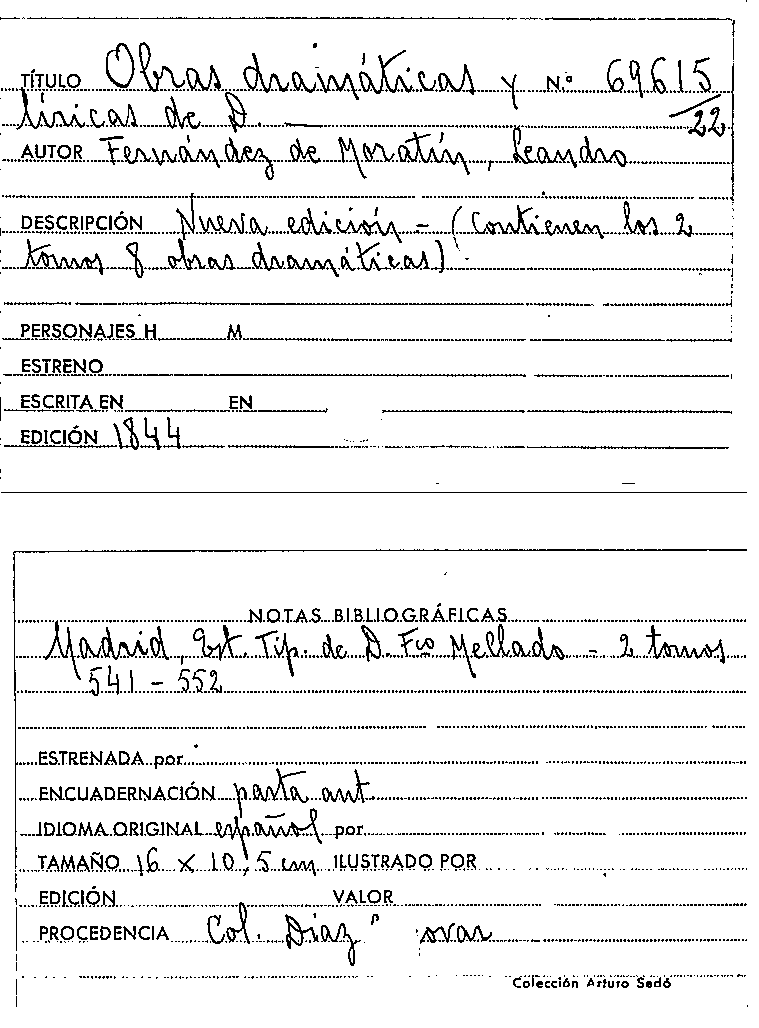 TÍTULO Obras dramáticas y N.º 69615
líricas de D. — /22
AUTOR Fernández de Moratín, Leandro
DESCRIPCIÓN Nueva edición - (Contienen los 2
tomos 8 obras dramáticas)
PERSONAJES H M
ESTRENO
ESCRITA EN EN
EDICIÓN 1844
NOTAS BIBLIOGRÁFICAS
Madrid, Est. Tip. de D. Fco Mellado - 2 tomos
541 - 552
ESTRENADA por
ENCUADERNACIÓN pasta ant.
IDIOMA ORIGINAL español por
TAMAÑO 16 x 10,5 cm ILUSTRADO POR
EDICIÓN VALOR
PROCEDENCIA Col. Díaz
Colección Arturo Sedó